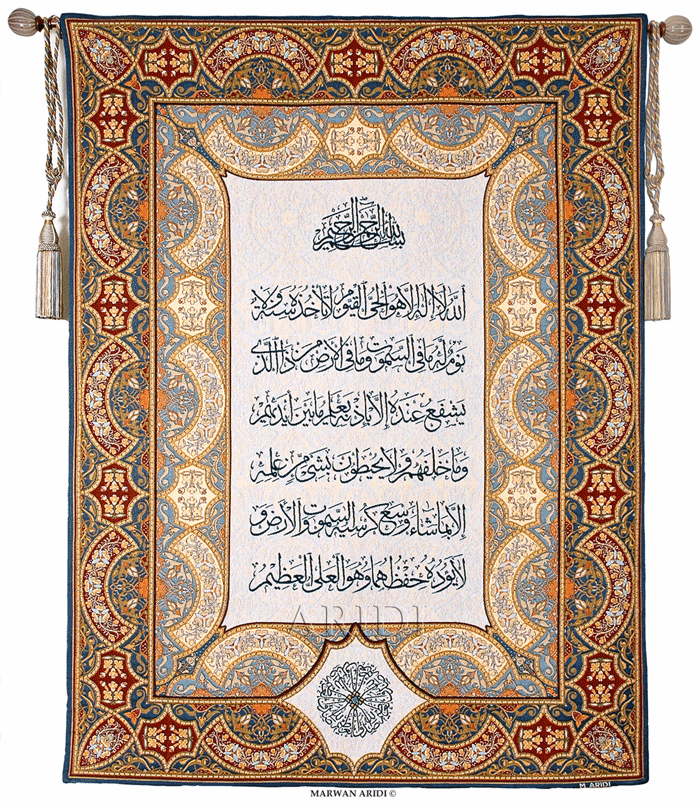 بسم الله الرحمن الرحيم
الله لا إله إلا هو الحي القيوم لا تأخذه سنة ولا
نوم له ما في السموت وما في الأرض من ذا الذي
يشفع عنده إلا بإذنه يعلم ما بين أيديهم
وما خلفهم ولا يحيطون بشيء من علمه
إلا بما شاء وسع كرسيه السموت والأرض و
لا يؤده حفظهما وهو العلي العظيم
ARIDI
M. ARIDI
MARWAN ARIDI ©